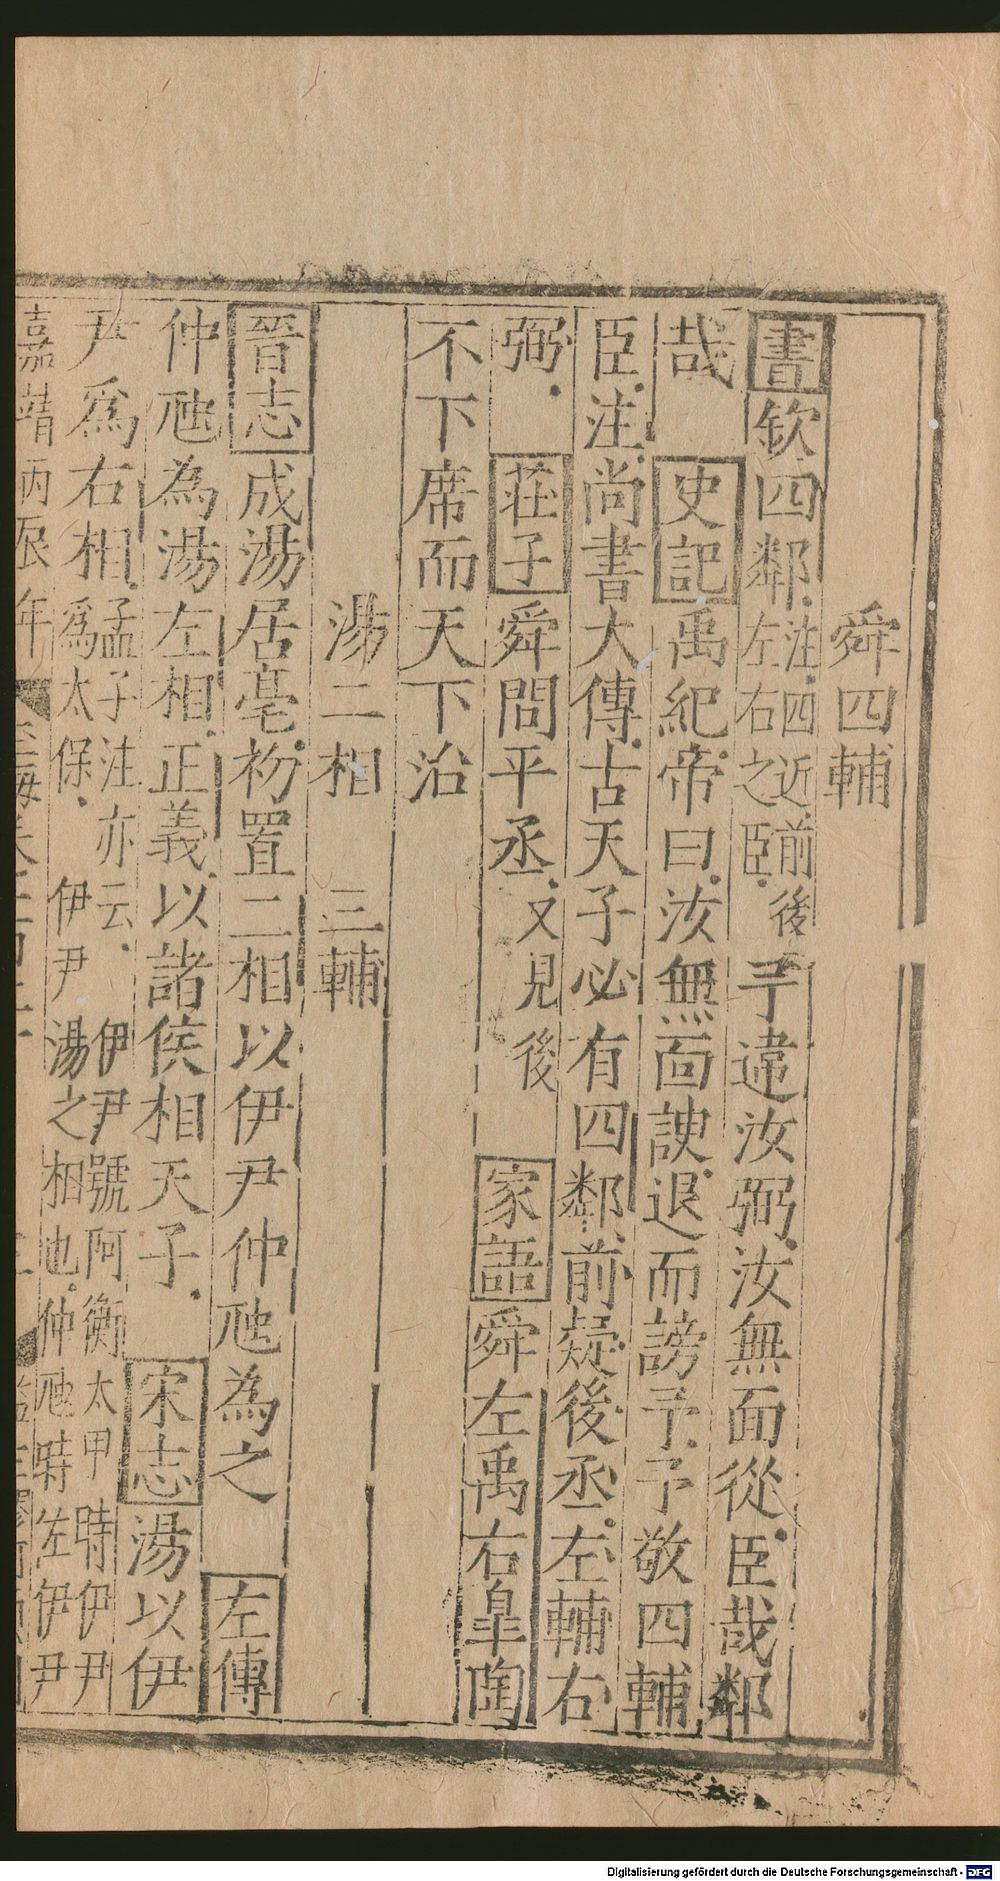 舜四輔
書欽四鄰注四近前後左右之臣予違汝弼汝無面從臣哉鄰
哉　史記禹紀帝曰汝無面諛退而謗予予敬四輔
臣注尚書大傳古天子必有四鄰前疑後丞左輔右
弼　莊子舜問乎丞又見後　家語舜左禹右皐陶
不下席而天下治
湯二相　三輔
晉志成湯居亳初置二相以伊尹仲虺為之　左傳
仲虺為湯左相正義以諸侯相天子　宋志湯以伊
尹爲右相孟子注亦云伊尹號阿衡太甲時伊尹爲太保伊尹湯之相也仲虺時左伊尹
嘉靖丙辰年
Digitalisierung gefördert durch die Deutsche Forschungsgemeinschaft - DFG